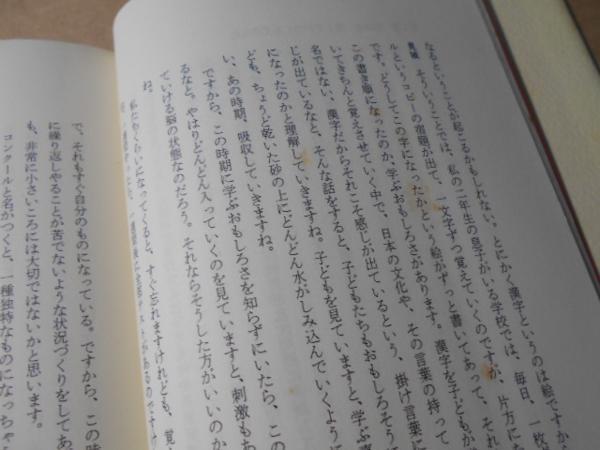 なるということが起こるかもしれない。とにかく漢字というのは絵ですか
そういうことでは、私の二年生の息子がいる学校では、毎日、一枚
ルというコピーの宿題が出て、一文字ずつ覚えていくのですが、片方にな
です。どうしてこの字になったかという絵がずっと書いてあって、それ
この書き順になったのか、学ぶおもしろさがあります。漢字を子どもが
いてきちんと覚えさせていく中で、日本の文化や、その言葉の持って
名ではない、漢字だからそれこそ感じが出ているという、掛け言葉に
じが出ているなと、そんな話をすると、子どもたちもおもしろそうに
になったのかと理解していきますね。子どもを見ていますと、学ぶ
ども、ちょうど乾いた砂の上にどんどん水がしみ込んでいくように
い、あの時期、吸収していきますね。
ですから、この時期に学ぶおもしろさを知らずにいたら、この
るなと、やはりどんどん入っていくのを見ていますと、刺激もあ
ていける脳の状態なのだろう。それならそうした方がいいのか
ね。
私たちくらいになってくると、すぐ忘れますけれども、覚
で、それもすぐ自分のものになっている。ですから、この時
に繰り返しやることが苦でないような状況づくりをしてあ
も、非常に小さいころには大切ではないかと思います。
コンクールと名がつくと、一種独特なものになっちゃ